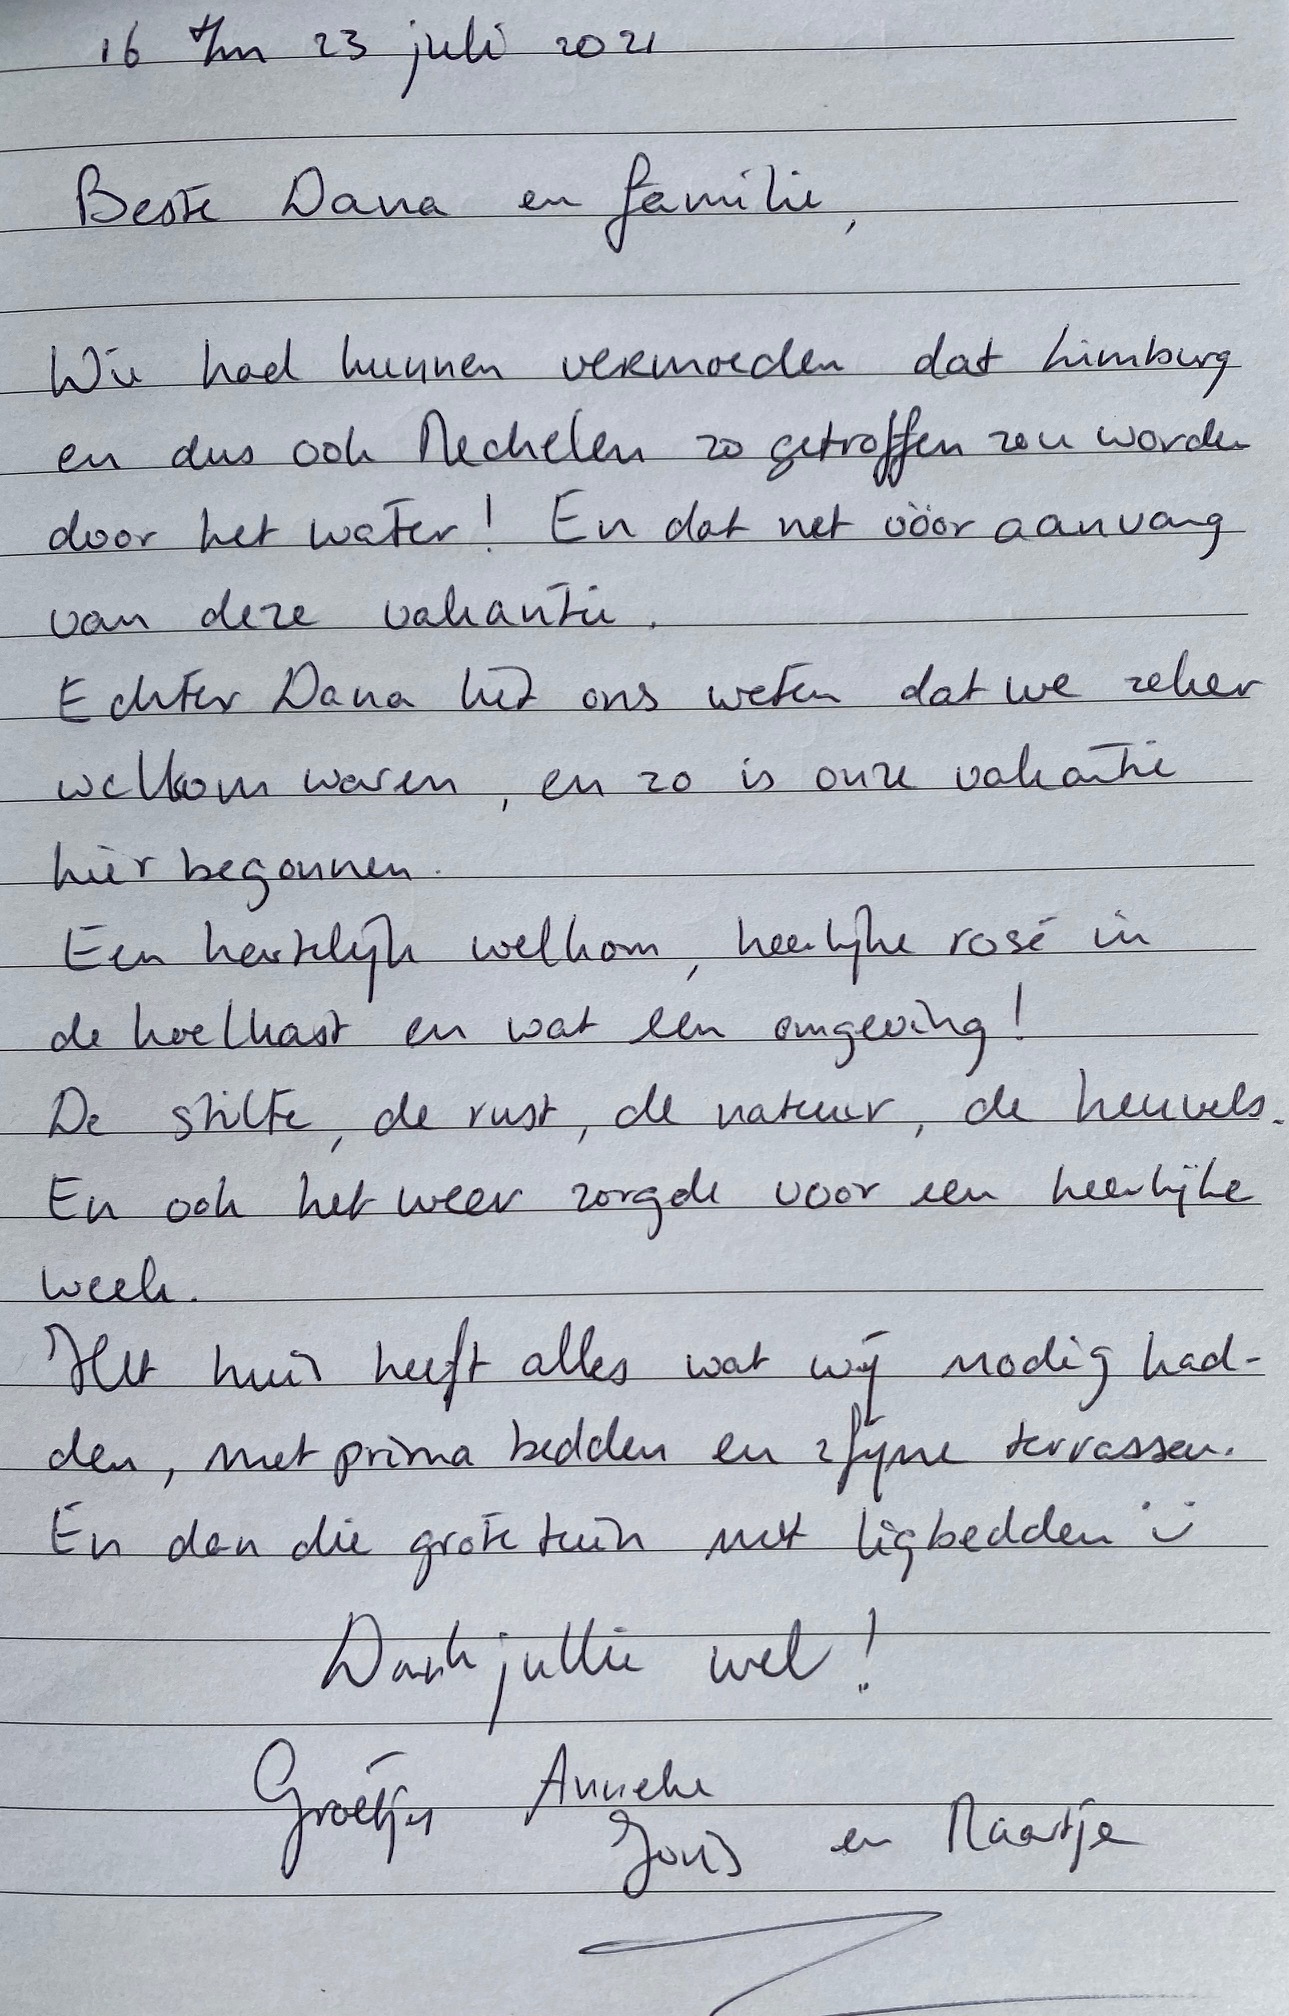 16 t/m 23 juli 2021
Beste Dana en familie,
Wie had kunnen vermoeden dat Limburg
en dus ook Mechelen zo getroffen zou worden
door het water! En dat net vóór aanvang
van deze vakantie.
Echter Dana liet ons weten dat we zeker
welkom waren, en zo is onze vakantie
hier begonnen.
Een hartelijk welkom, heerlijke rosé in
de koelkast en wat een omgeving!
De stilte, de rust, de natuur, de heuvels.
En ook het weer zorgde voor een heerlijke
week.
Het huis heeft alles wat wij nodig had-
den, met prima bedden en fijne terrassen.
En dan die grote tuin met ligbedden ü
Dank jullie wel!
Groetjes Anneke
Joris en Maartje